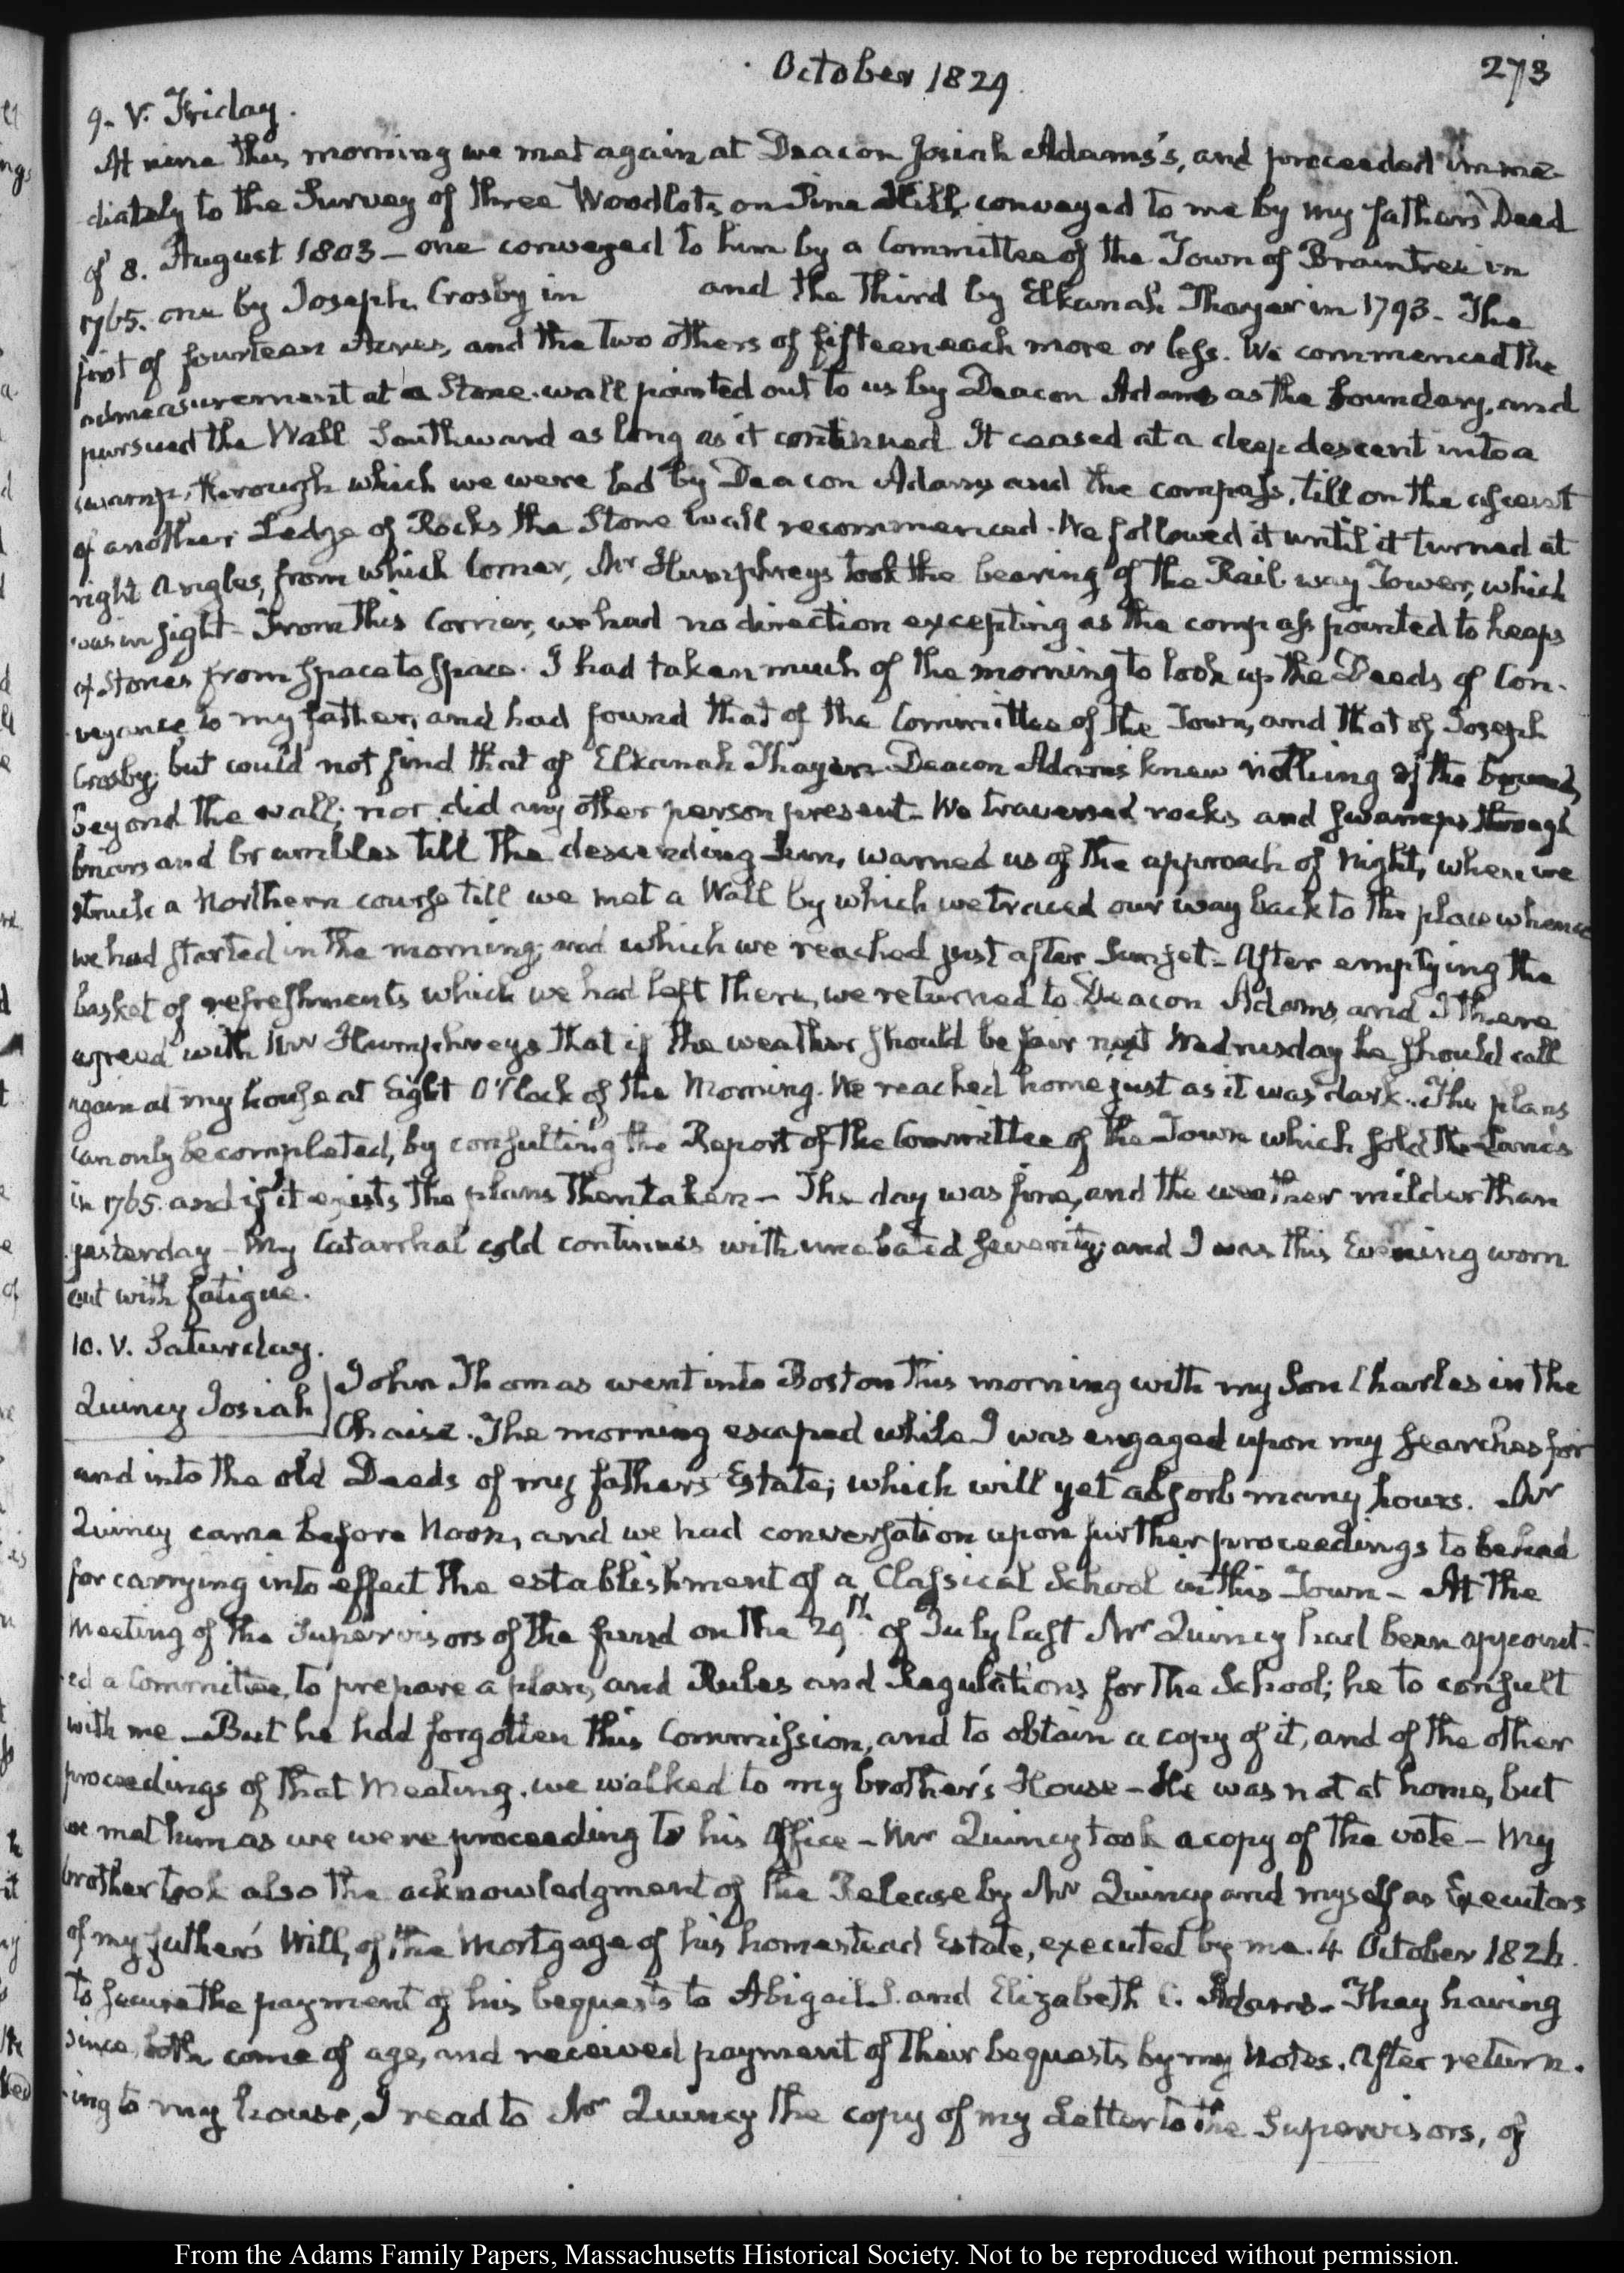 October 1829
273
9. V. Friday.
At nine this morning we met again at Deacon Josiah Adams's, and proceeded imme-
diately to the Survey of three Woodlots, on Pine Hill, conveyed to me by my father's Deed
of 8. August 1803 — one conveyed to him by a Committee of the Town of Braintree in
1765. one by Joseph Crosby in and the third by Elkanah Thayer in 1793. The
first of fourteen Acres, and the two others of fifteen each more or less. We commenced the
admeasurement at a Stone-wall pointed out to us by Deacon Adams as the boundary, and
pursued the Wall Southward as long as it continued. It ceased at a deep descent into a
swamp, through which we were led by Deacon Adams and the compass, till on the ascent
of another Ledge of Rocks the Stone Wall recommenced. We followed it until it turned at
right Angles, from which Corner, Mr Humphreys took the bearing of the Rail way Tower, which
was in sight — From this Corner, we had no direction excepting as the compass pointed to heaps
of Stones from space to space. I had taken much of the morning to look up the Deeds of Con-
veyance to my father, and had found that of the Committee of the Town, and that of Joseph
Crosby; but could not find that of Elkanah Thayer. Deacon Adams knew nothing of the bounds,
beyond the wall; nor did any other person present — We traversed rocks and swamps through
briars and brambles till the descending Sun, warned us of the approach of Night, when we
struck a Northern course till we met a Wall by which we traced our way back to the place whence
we had started in the morning; and which we reached just after Sunset — After emptying the
basket of refreshments which we had left there, we returned to Deacon Adams, and I there
agreed with Mr Humphreys that if the weather should be fair next Wednesday he should call
again at my house at Eight O'Clock of the Morning. We reached home just as it was dark. The plans
can only be completed, by consulting the Report of the Committee of the Town which sold the Lands
in 1765. and if it exists the plans then taken — The day was fine, and the weather milder than
yesterday — My Catarrhal cold continues with unabated severity; and I was this Evening worn
out with fatigue.
10. V. Saturday.
Quincy Josiah
John Thomas went into Boston this morning with my Son Charles in the
Chaise. The morning escaped while I was engaged upon my searches for
and into the old Deeds of my father's Estate; which will yet absorb many hours. Mr
Quincy came before Noon, and we had conversation upon further proceedings to be had
for carrying into effect the establishment of a Classical School in this Town — At the
Meeting of the Supervisors of the fund on the 29th of July last Mr Quincy had been appoint-
ed a Committee, to prepare a plan, and Rules and Regulations for the School; he to consult
with me — But he had forgotten this Commission, and to obtain a copy of it, and of the other
proceedings of that Meeting, we walked to my brother's House — He was not at home, but
we met him as we were proceeding to his Office — Mr Quincy took a copy of the vote — My
brother took also the acknowledgment of the Release by Mr Quincy and myself as Executors
of my father's Will, of the Mortgage of his homestead Estate, executed by me. 4 October 1826.
to secure the payment of his bequests to Abigail S. and Elizabeth C. Adams — They having
since both come of age, and received payment of their bequests by my Notes. After return-
ing to my house, I read to Mr Quincy the copy of my Letter to the Supervisors, of
From the Adams Family Papers, Massachusetts Historical Society. Not to be reproduced without permission.